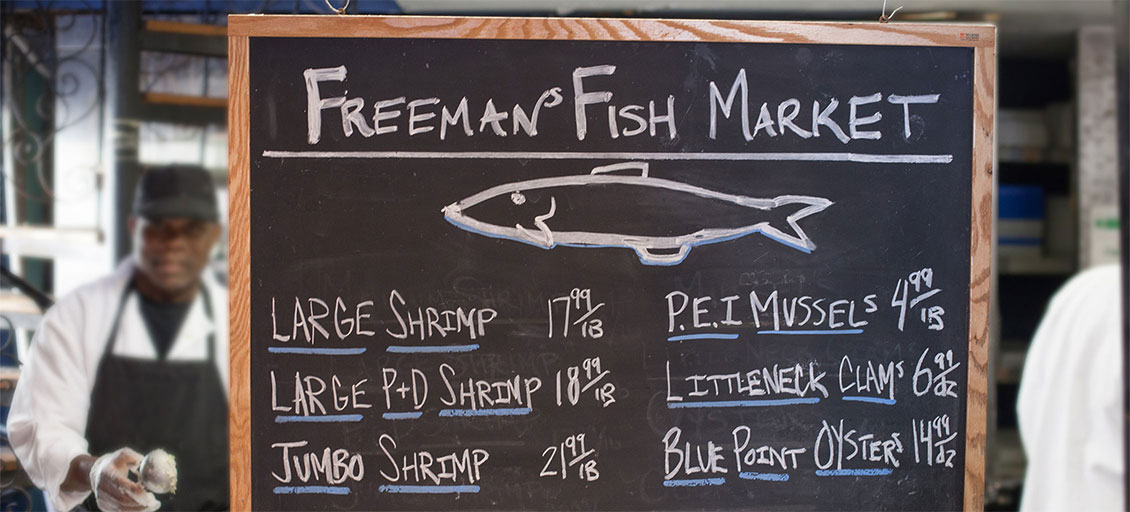 FREEMANs FISH MARKET
LARGE SHRIMP 17 99/lB
LARGE P+D SHRIMP 18 99/lB
JUMBO SHRIMP 21 99/lB
P.E.I MUSSELS 4 99/lB
LITTLENECK CLAMS 6 99/dz
BLUE POINT OYSTERS 14 99/dz